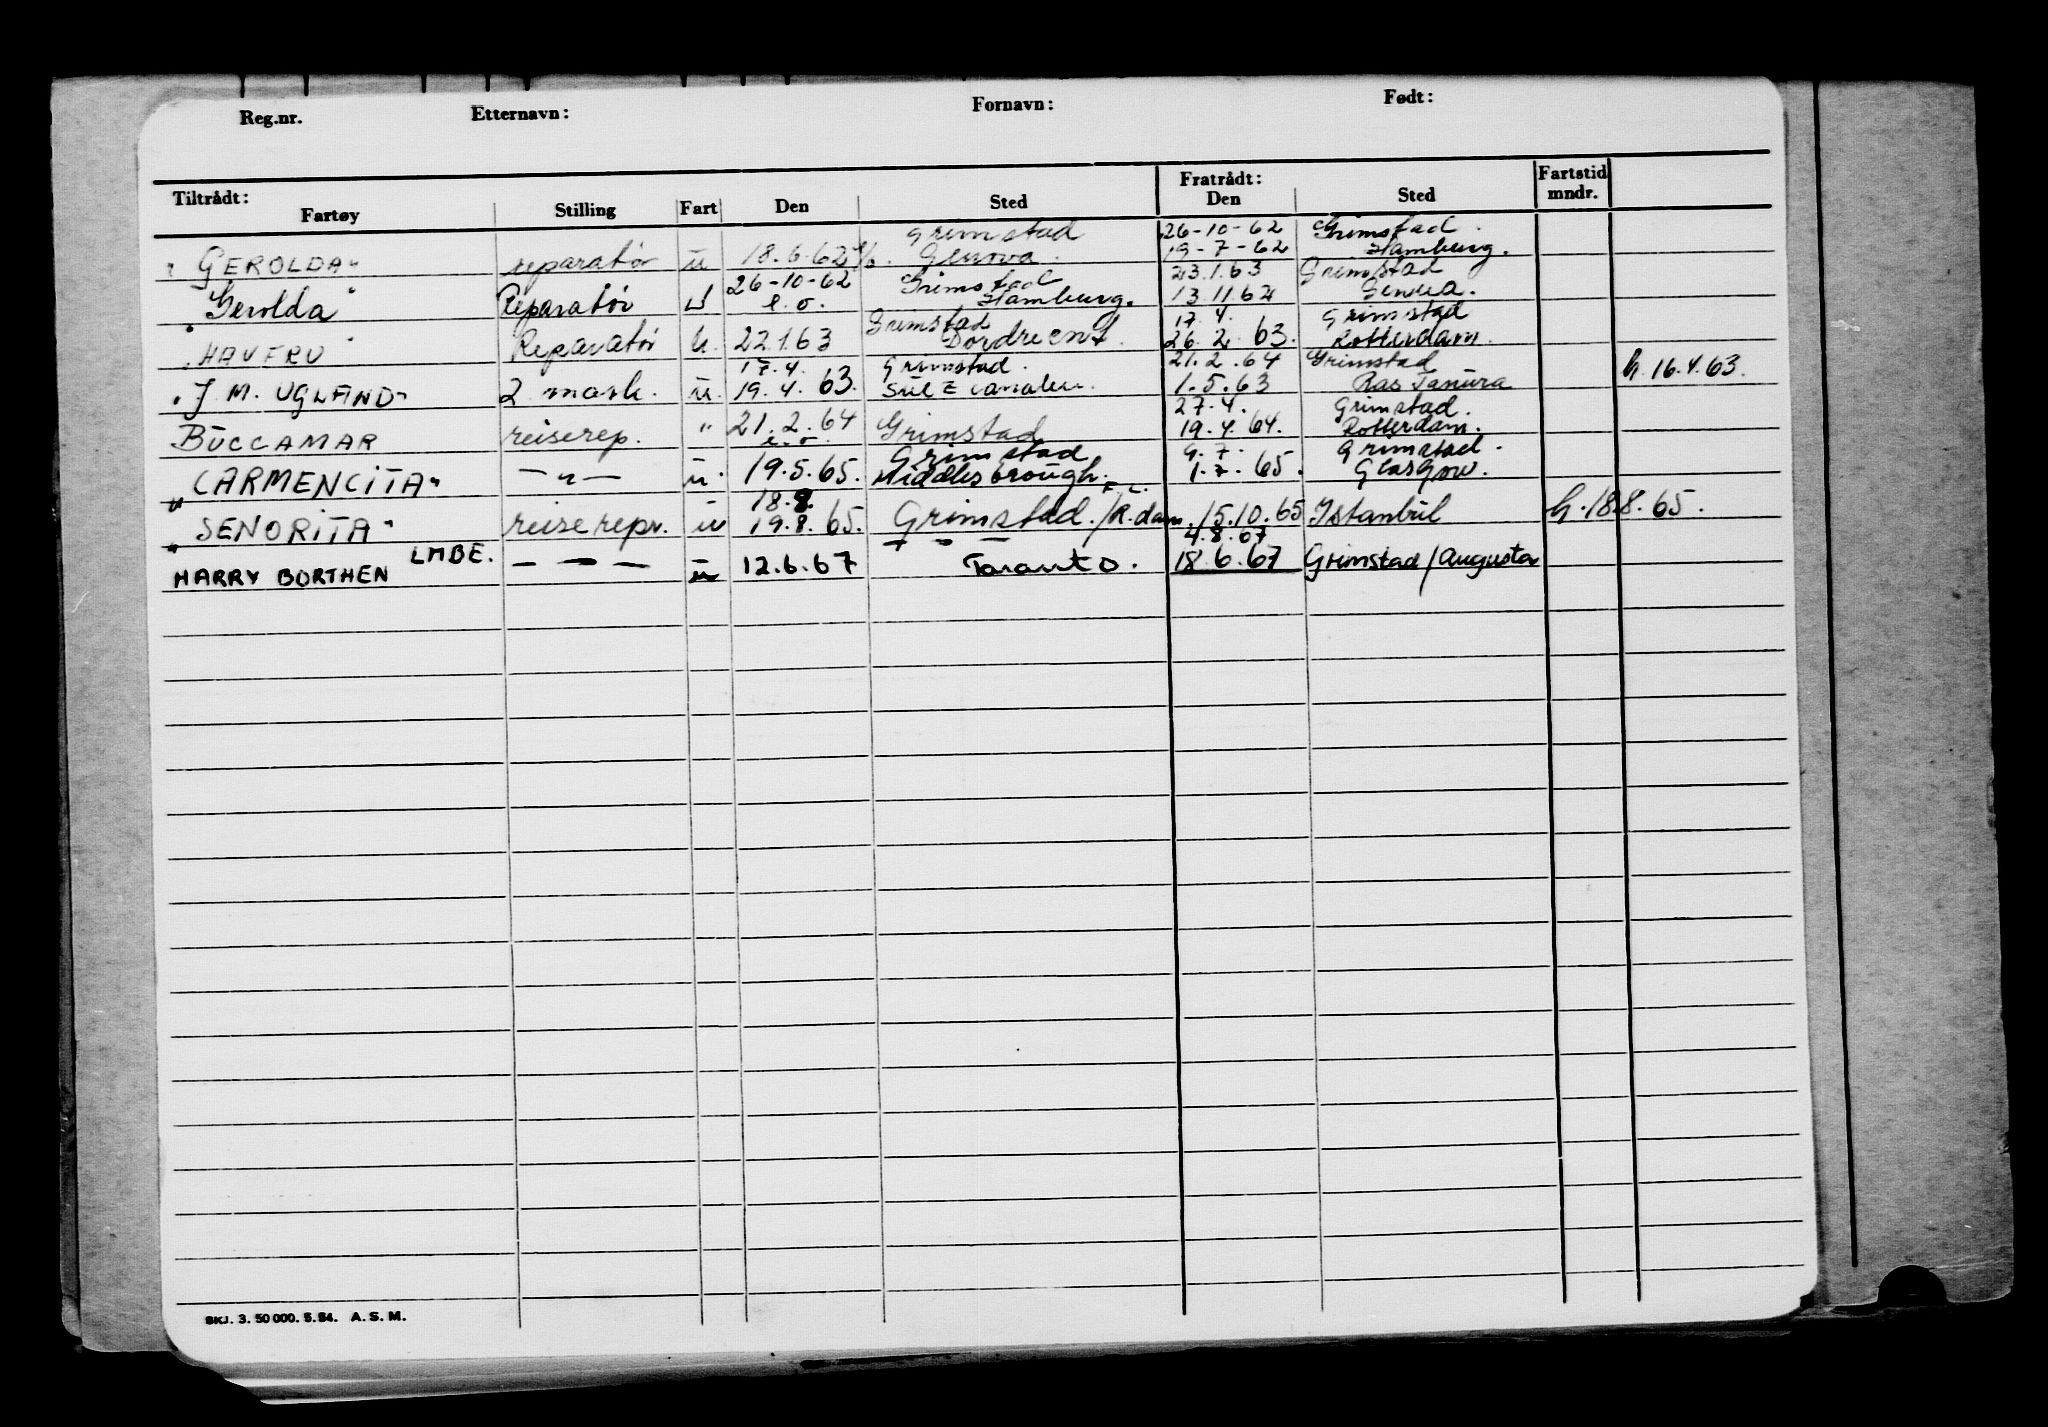 Reg.nr. Etternavn: Fornavn: Født:
Tiltrådt: Fratrådt: Fartstid
Fartøy Stilling Fart Den Sted Den Sted mndr.
Grimstad 26-10-62 Grimstad
"GEROLDA" reparatør u 18.6.62 Genova. 19-7-62 Hamburg.
26-10-62 Grimstad 23.1.63 Grimstad
"Gerolda" Reparatør U l.o. Hamburg. 13.11.62 Genua.
Grimstad 17.4. Grimstad
"HAVFRU" Reparatør u. 22.1.63 Dordrecht. 26.2.63. Rotterdam.
17.4. Grimstad. 21.2.64 Grimstad
"J.M. UGLAND" 2 mask. u. 19.4.63. Suez canalen. 1.5.63 Ras Tanura h. 16.4.63.
21.2.64 27.4. Grimstad.
BUCCAMAR reiserep. " l.o. Grimstad 19.4.64. Rotterdam.
Grimstad 9.7. Grimstad
"CARMENCITA" — " — u. 19.5.65. Middlesbrough. 1.7.65. Glasgow.
18.8.
"SENORITA" reiserepr. u 19.8.65. Grimstad./R.dam. 15.10.65 Istanbul h. 18.8.65.
LMBE. 4.8.67
HARRY BORTHEN — — — u 12.6.67 Taranto. 18.6.67 Grimstad/Augusta
SKJ. 3. 50 000. 5.54. A. S. M.